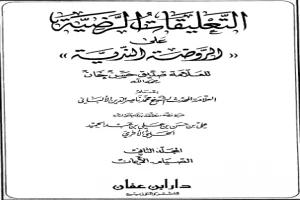 التعليقات الرضية
على
«الروضة الندية»
للعلامة صديق حسن خان
رحمه الله
بقلم
العلامة المحدث الشيخ محمد ناصر الدين الألباني
علي بن حسن بن علي بن عبد الحميد
الحلبي الأثري
المجلد الثاني
الصيام
دار ابن عفان